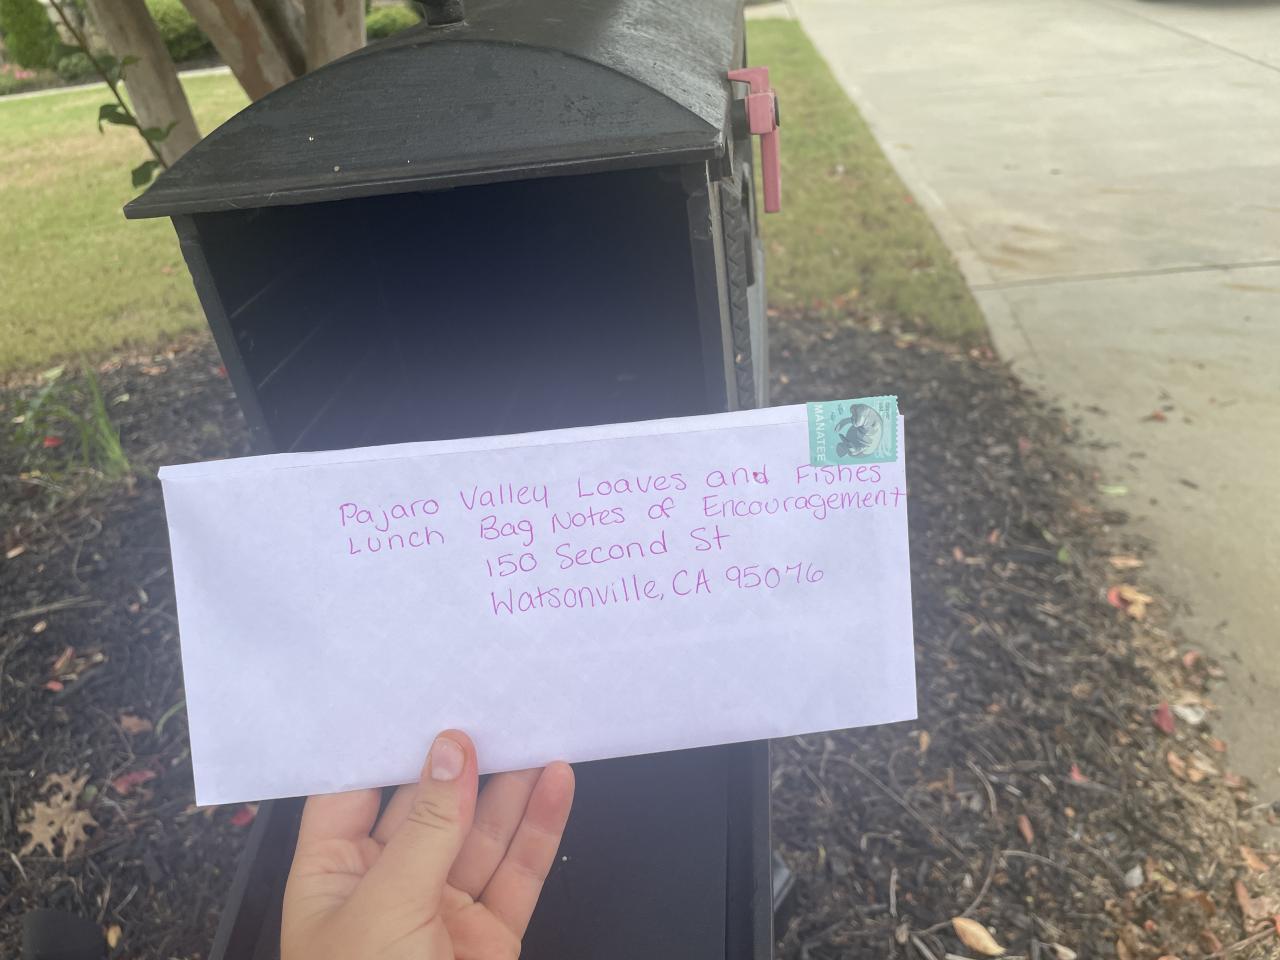 MANATEE
Pajaro Valley Loaves and Fishes
Lunch Bag Notes of Encouragement
150 Second St
Watsonville, CA 95076